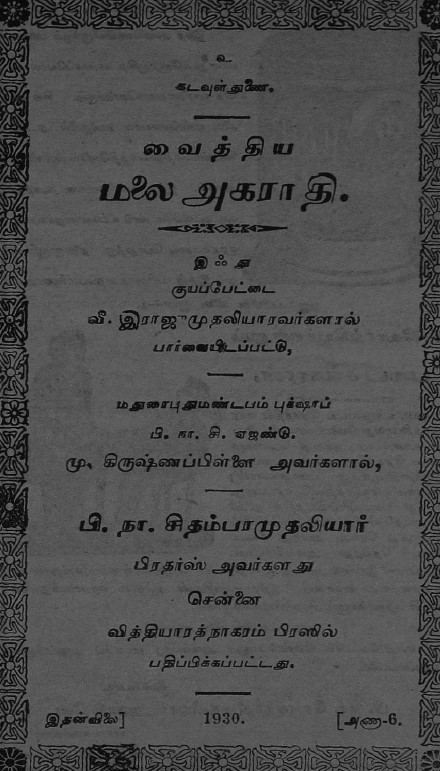 உ
கடவுள்துணை.
வைத்திய
மலை அகராதி.
இஃது
குயப்பேட்டை
வீ. இராஜுமுதலியாரவர்களால்
பார்வையிடப்பட்டு,
மதுரைபுதுமண்டபம் புக்ஷாப்
பி. நா. சி. ஏஜண்டு.
மு, கிருஷ்ணப்பிள்ளை அவர்களால்,
பி. நா. சிதம்பரமுதலியார்
பிரதர்ஸ் அவர்களது
சென்னை
வித்தியாரத்நாகரம் பிரஸில்
பதிப்பிக்கப்பட்டது.
இதன்விலை] 1930. [அணா-6.